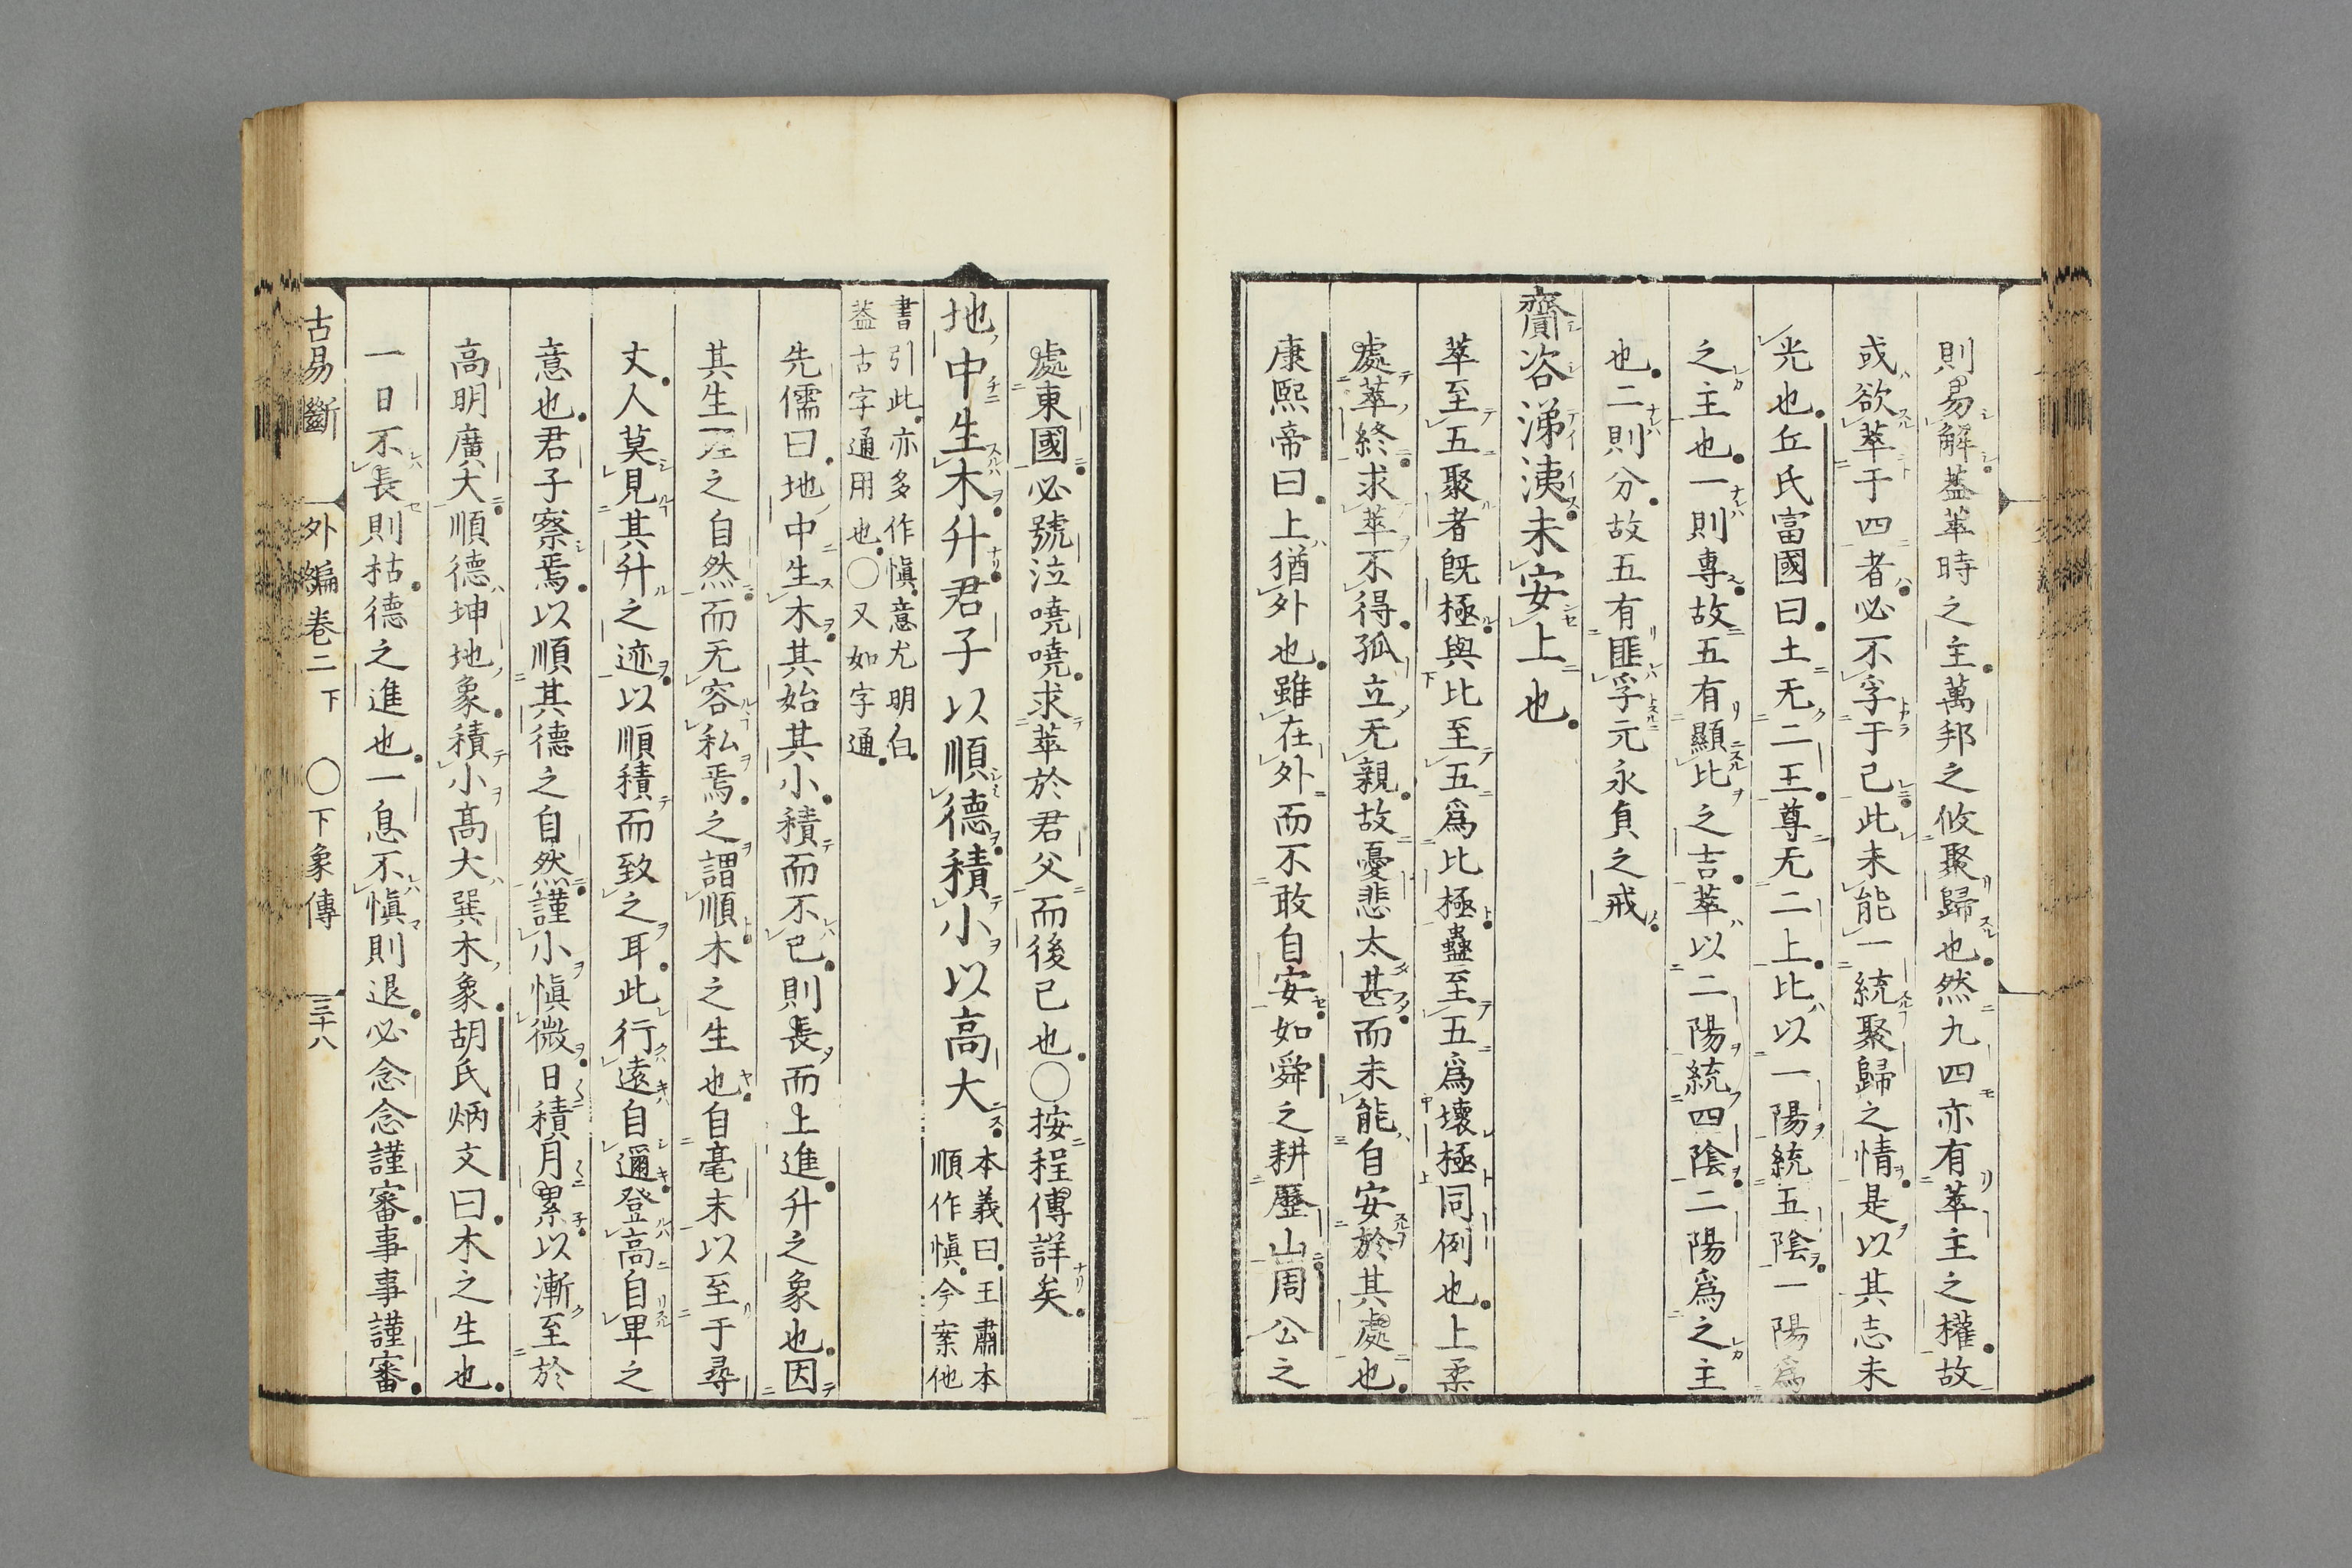 則易解蓋萃時之主萬邦之攸聚歸也然九四亦有萃主之權故
或欲萃于四者必不孚于己此未能一統聚歸之情是以其志未
光也丘氏富國曰土无二王尊无二上比以一陽統五陰一陽爲
之主也一則專故五有顯比之吉萃以二陽統四陰二陽爲之主
也二則分故五有匪孚元永貞之戒
齎咨涕洟未安上也
萃至五聚者既極與比至五爲比極蠱至五爲壞極同例也上柔
處萃終求萃不得孤立无親故憂悲太甚而未能自安於其處也
康熙帝曰上猶外也雖在外而不敢自安如舜之耕歷山周公之
處東國必號泣嘵嘵求萃於君父而後已也〇按程傳詳矣
地中生木升君子以順德積小以高大
本義曰王肅本
順作愼今案他
書引此亦多作愼意尤明白
蓋古字通用也〇又如字通
先儒曰地中生木其始其小積而不已則長而上進升之象也因
其生理之自然而无容私焉之謂順木之生也自毫末以至于尋
丈人莫見其升之迹以順積而致之耳此行遠自邇登高自卑之
意也君子察焉以順其德之自然謹小愼微日積月累以漸至於
高明廣大順德坤地象積小高大巽木象胡氏炳文曰木之生也
一日不長則枯德之進也一息不愼則退必念念謹審事事謹審
古易斷　外編卷二下　〇下象傳　三十八